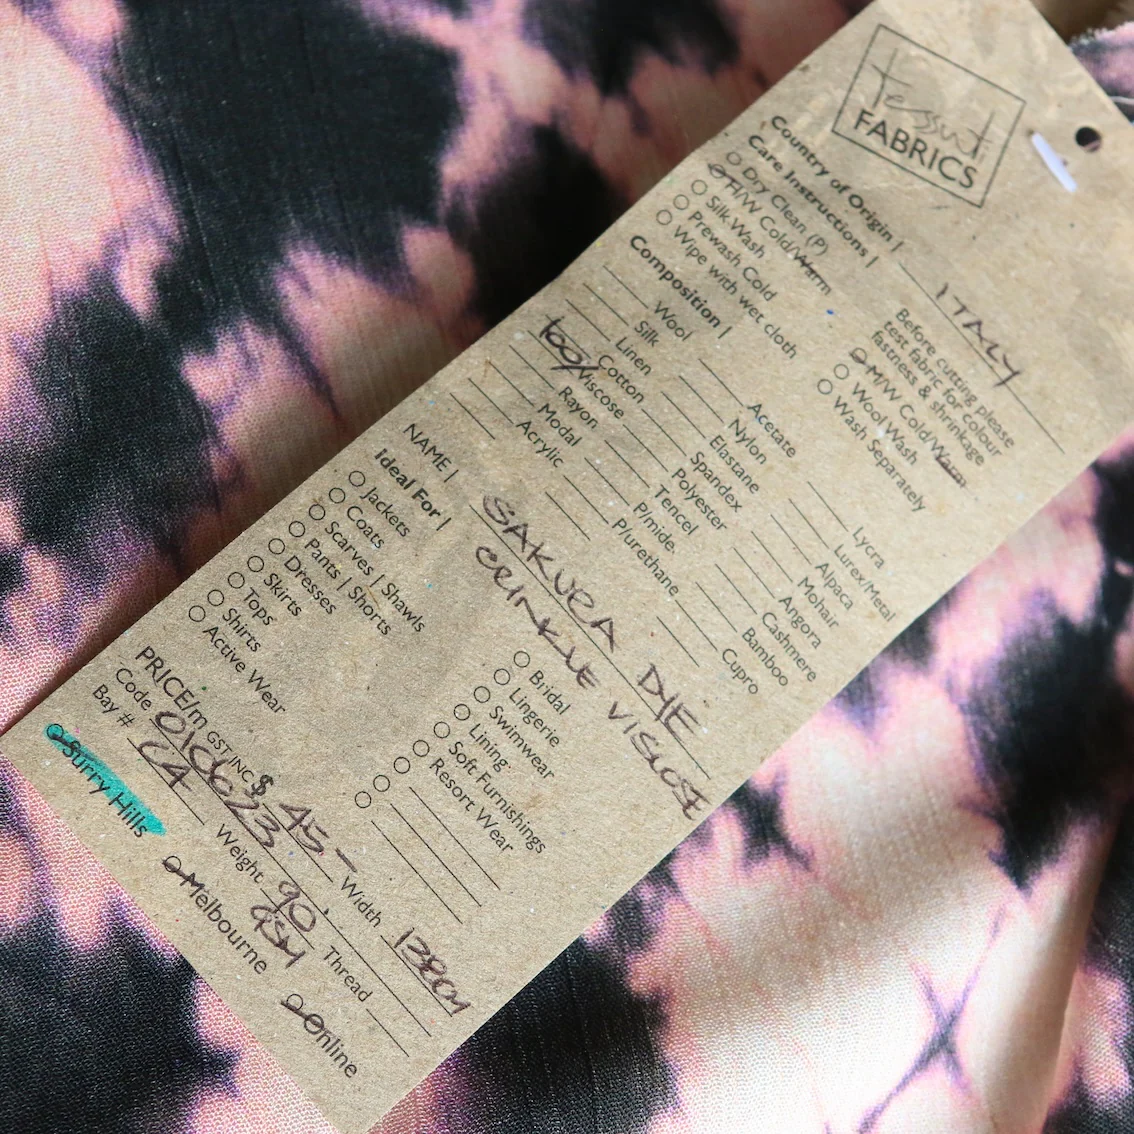 Tessuti
FABRICS
Country of Origin | ITALY
Care Instructions |
Dry Clean (P)
H/W Cold/Warm
Silk Wash
Prewash Cold
Wipe with wet cloth
Before cutting please
test fabric for Colour
fastness & shrinkage
M/W Cold/Warm
Wool Wash
Wash Separately
Composition |
Wool
Silk
Linen
Cotton
100% Viscose
Rayon
Modal
Acrylic
Acetate
Nylon
Elastane
Spandex
Polyester
Tencel
P/mide.
P/urethane
Lycra
Lurex/Metal
Alpaca
Mohair
Angora
Cashmere
Bamboo
Cupro
NAME | SAKURA DYE
CRINKLE VISCOSE
Ideal For |
Jackets
Coats
Scarves | Shawls
Pants | Shorts
Dresses
Skirts
Tops
Shirts
Active Wear
Bridal
Lingerie
Swimwear
Lining
Soft Furnishings
Resort Wear
PRICE/m GST INC $ 45.- Width 138cm
Code Weight 90 GSM Thread
Bay # C4
Surry Hills Melbourne Online